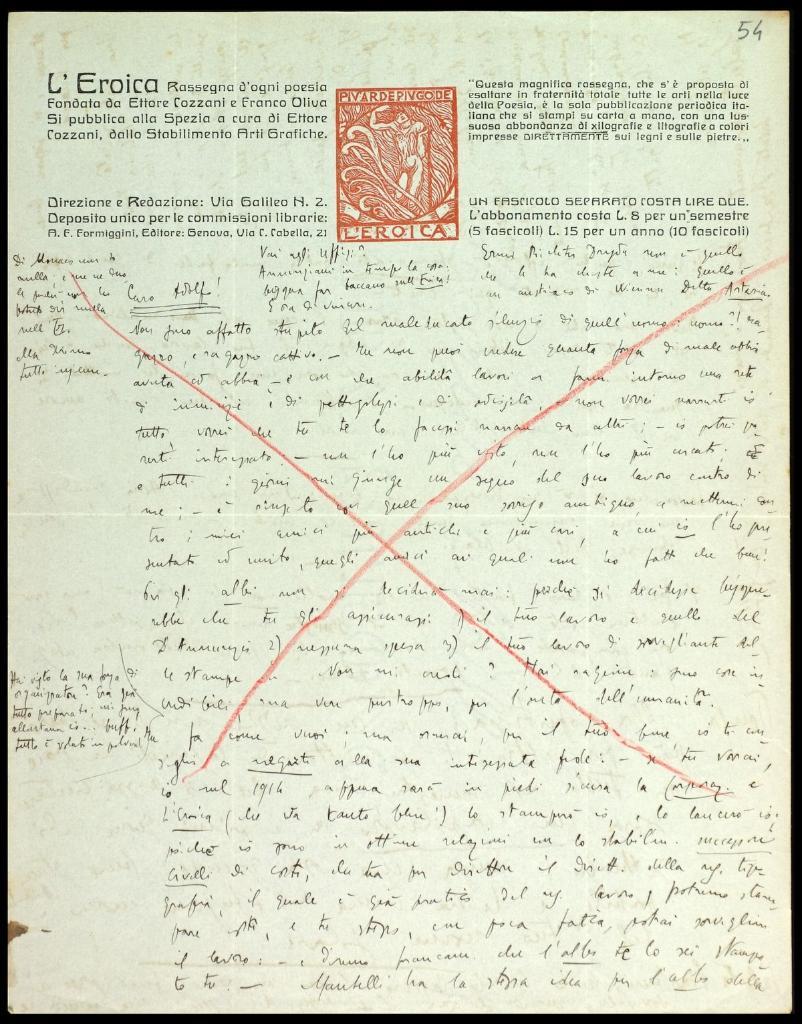 54
L'Eroica Rassegna d'ogni poesia
Fondata da Ettore Cozzani e Franco Oliva
Si pubblica alla Spezia a cura di Ettore
Cozzani, dallo Stabilimento Arti Grafiche.
Direzione e Redazione: Via Galileo N. 2.
Deposito unico per le commissioni librarie:
A. F. Formiggini, Editore: Genova, Via C. Cabella, 21
PIVARDEPIVGODE
L'EROICA
"Questa magnifica rassegna, che s'è proposta di
esaltare in fraternità totale tutte le arti nella luce
della Poesia, è la sola pubblicazione periodica ita-
liana che si stampi su carta a mano, con una lus-
suosa abbondanza di xilografie e litografie a colori
impresse DIRETTAMENTE sui legni e sulle pietre.,,
UN FASCICOLO SEPARATO COSTA LIRE DUE.
L'abbonamento costa L. 8 per un semestre
(5 fascicoli) L. 15 per un anno (10 fascicoli)
Vai agli Uffizi?
Annunziami in tempo la cosa:
bisogna far baccano sull'Eroica!
non è quello
che li ha chieste a me: quello è
un austriaco di Vienna Della Artaria.
Caro Adolfo!
Non sono affatto stupito del maleducato silenzio di quell'uomo: uomo?! ra-
gazzo, e ragazzo cattivo. — Tu non puoi credere quanta forza di male abbia
avuta ed abbia — e con che abilità lavori a farmi intorno una rete
di inimicizie e di pettegolezzi e di ostilità, — non vorrei narrarti io
tutto vorrei che tu te lo facessi narrare da altri; — io potrei pa-
rerti interessato. — non l'ho più visto, non l'ho più cercato;
e tutti i giorni mi giunge un segno del suo lavoro contro di
me; — è riuscito con quel suo sorriso ambiguo, a mettermi con-
tro i miei amici più antichi e più cari, a cui io l'ho pre-
sentato ed unito, quegli amici ai quali non ho fatto che bene!
Per gli albi non si deciderà mai: perché si decidesse bisogne-
rebbe che tu gli assicurassi 1) il tuo lavoro e quello del
D'Annunzio 2) nessuna spesa 3) il tuo lavoro di sorvegliante del-
le stampe. Non mi credi? Hai ragione: sono cose in-
credibili ma vere purtroppo, per l'onta dell'umanità.
Hai visto la sua forza di
organizzatore? Era già
tutto preparato; mi sono
allontanato io... buff!
tutto è volato in polvere!
Ma fa come vuoi; ma ormai, per il tuo bene io ti con-
siglio a negarti alla sua interessata fede: — se tu vorrai,
io nel 1914 appena sarà in piedi sicura la Corporaz. e
L'Eroica (che va tanto bene!) lo stamperò io, e lo lancerò io;
poiché io sono in ottime relazioni con lo stabilim. successori
Civelli di costì, che ha per direttore il Dirett. della
grafia, il quale è già pratico del lavoro, potremo stam-
pare costì, e tu stesso, con poca fatica, potrai sorvegliare
il lavoro: — e diremo francam. che l'albo te lo sei stampa-
to tu: — Mantelli ha la stessa idea per l'albo della